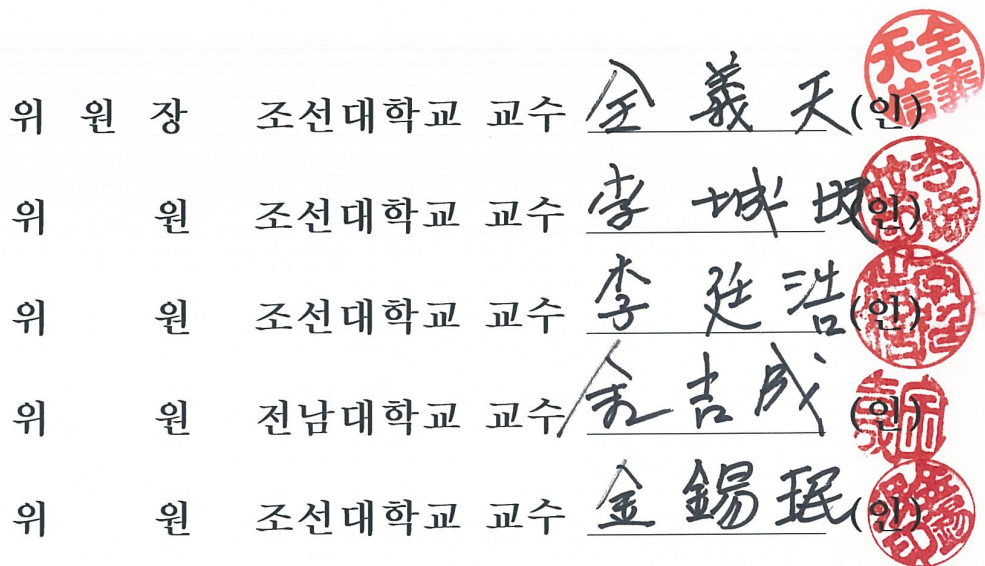 위 원 장 조선대학교 교수 全 義 天 (인)
위 원 조선대학교 교수 李 城 (인)
위 원 조선대학교 교수 李 廷 浩 (인)
위 원 전남대학교 교수 金 吉 成 (인)
위 원 조선대학교 교수 金 錫 珉 (인)
全義天信